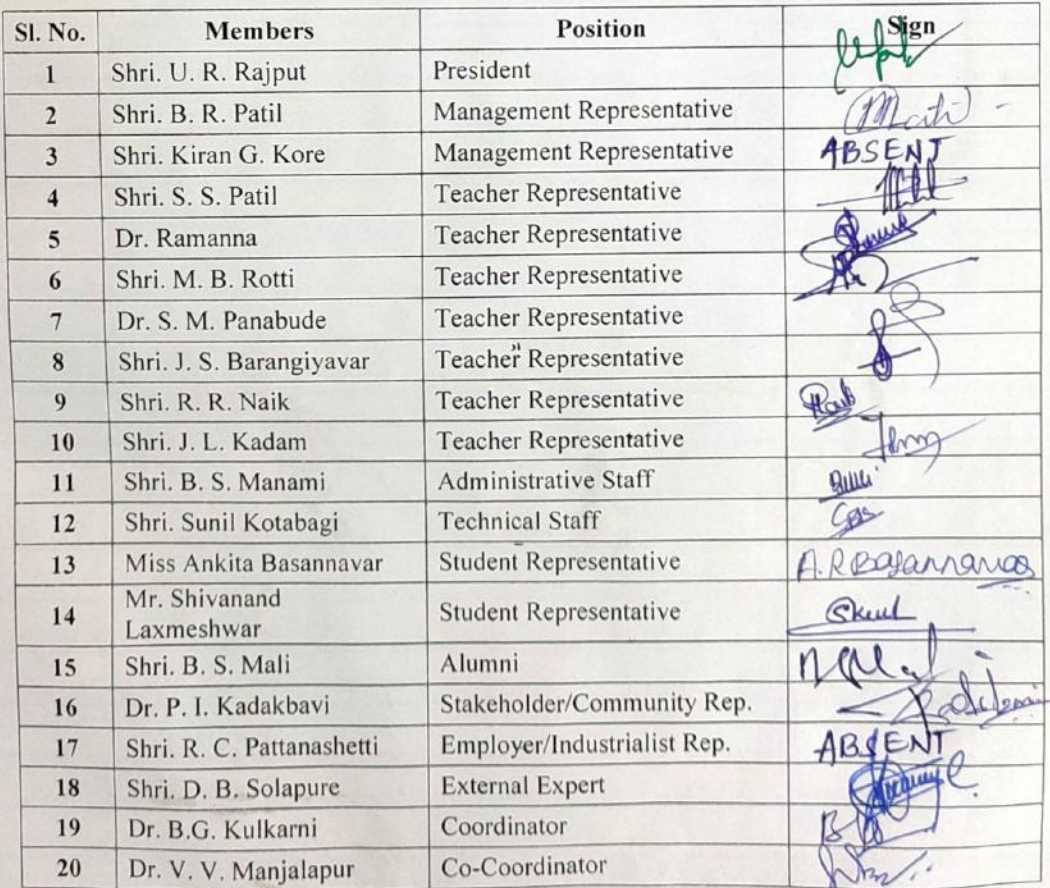 Sl. No. Members Position Sign
1 Shri. U. R. Rajput President
2 Shri. B. R. Patil Management Representative
3 Shri. Kiran G. Kore Management Representative ABSENT
4 Shri. S. S. Patil Teacher Representative
5 Dr. Ramanna Teacher Representative
6 Shri. M. B. Rotti Teacher Representative
7 Dr. S. M. Panabude Teacher Representative
8 Shri. J. S. Barangiyavar Teacher Representative
9 Shri. R. R. Naik Teacher Representative
10 Shri. J. L. Kadam Teacher Representative
11 Shri. B. S. Manami Administrative Staff
12 Shri. Sunil Kotabagi Technical Staff
13 Miss Ankita Basannavar Student Representative A.R Basannavar
14 Mr. Shivanand
Laxmeshwar Student Representative
15 Shri. B. S. Mali Alumni
16 Dr. P. I. Kadakbavi Stakeholder/Community Rep.
17 Shri. R. C. Pattanashetti Employer/Industrialist Rep. ABSENT
18 Shri. D. B. Solapure External Expert
19 Dr. B.G. Kulkarni Coordinator
20 Dr. V. V. Manjalapur Co-Coordinator